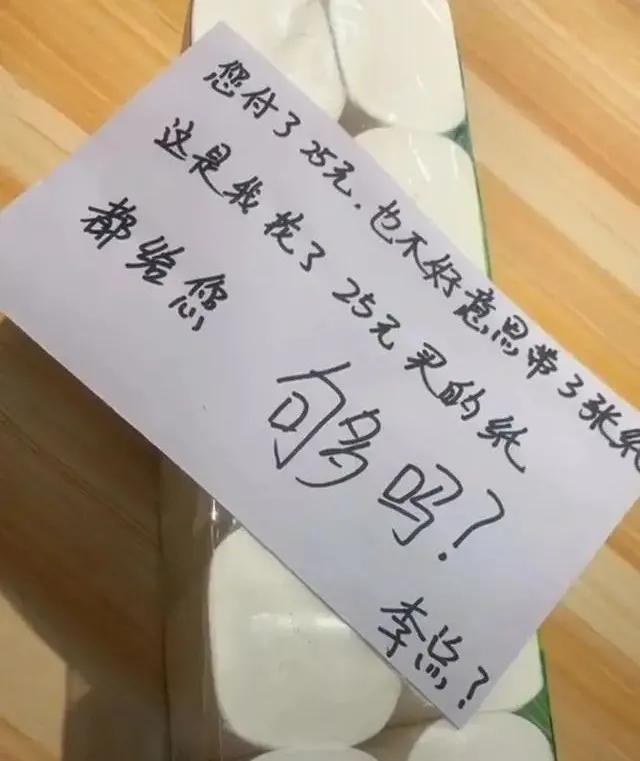 您付了25元.也不好意思带了3张纸
这是我找了25元买的纸
都给您
够吗?
李总?